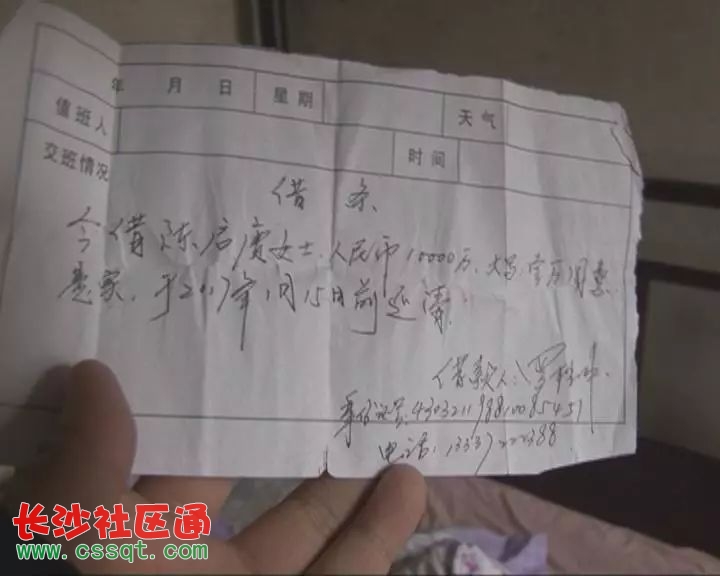 年 月 日 星期 天气
值班人 时间
交班情况
借条
今借陈启赓女士人民币10000万,大写:壹万圆整
于2017年1月15日前还清
借款人:罗
身份证号:430321198810085451
电话:13337222388
长沙社区通
www.cssqt.com